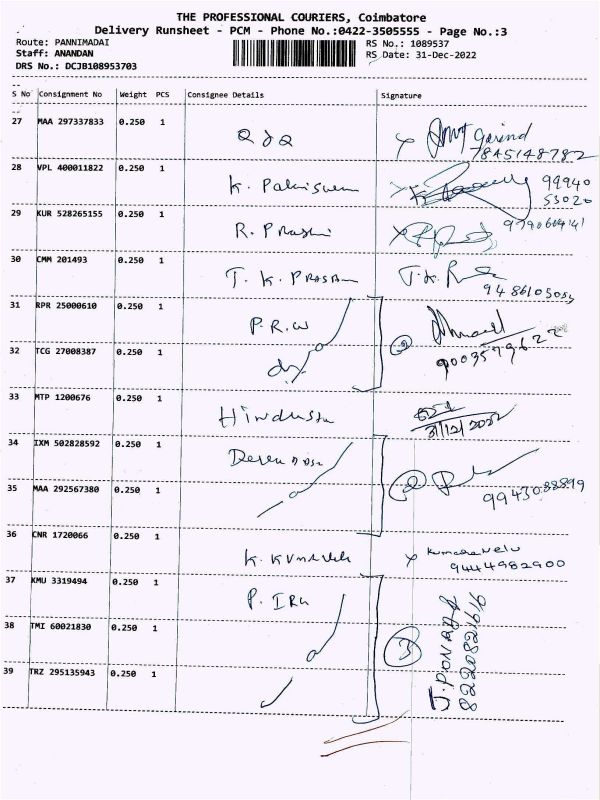 THE PROFESSIONAL COURIERS, Coimbatore
Delivery Runsheet - PCM - Phone No.:0422-3505555 - Page No.:3
Route: PANNIMADAI RS No.: 1089537
Staff: ANANDAN RS Date: 31-Dec-2022
DRS No.: DCJB108953703
S No Consignment No Weight PCS Consignee Details Signature
27 MAA 297337833 0.250 1
7845148782
28 VPL 400011822 0.250 1 K. 99940
53020
29 KUR 528265155 0.250 1 R.
30 CMM 201493 0.250 1 T. K. T.K.
31 RPR 25000610 0.250 1 P.R.W
9003579622
32 TCG 27008387 0.250 1 do
33 MTP 1200676 0.250 1 Hindustan
31/12/2022
34 IXM 502828592 0.250 1
2
35 MAA 292567380 0.250 1
9943088899
36 CNR 1720066 0.250 1 K. Kumaravelu
9444982900
37 KMU 3319494 0.250 1 P.
38 TMI 60021830 0.250 1 3
39 TRZ 295135943 0.250 1
J. PONRAJ
8220821616